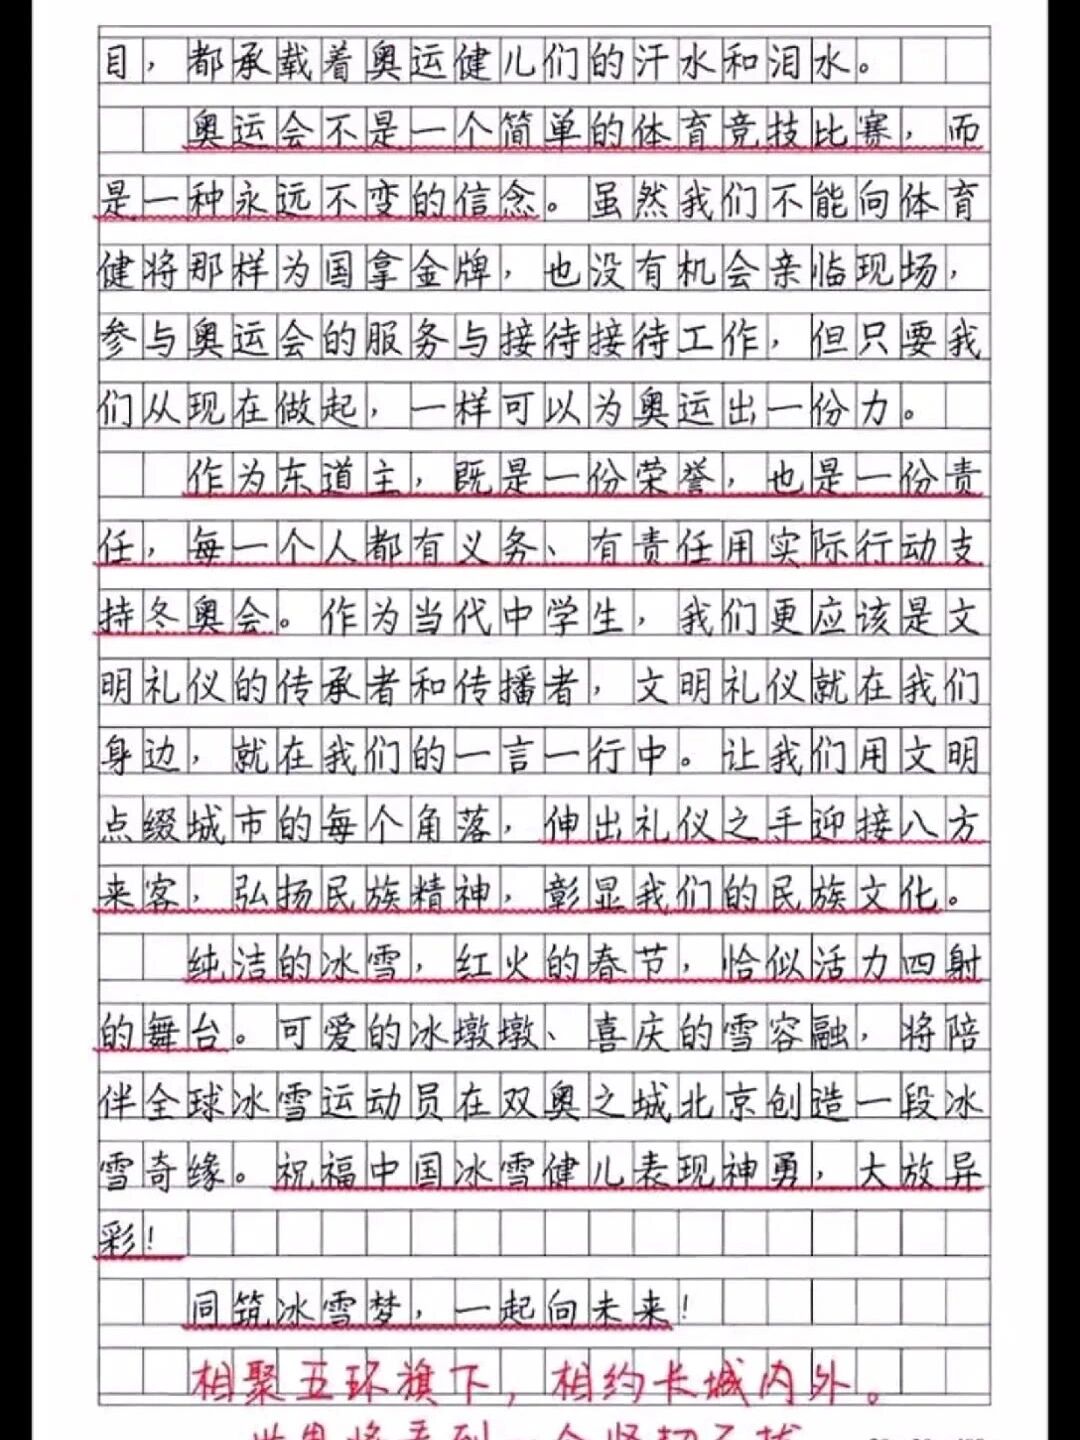 目，都承载着奥运健儿们的汗水和泪水。
奥运会不是一个简单的体育竞技比赛，而
是一种永远不变的信念。虽然我们不能向体育
健将那样为国拿金牌，也没有机会亲临现场，
参与奥运会的服务与接待接待工作，但只要我
们从现在做起，一样可以为奥运出一份力。
作为东道主，既是一份荣誉，也是一份责
任，每一个人都有义务、有责任用实际行动支
持冬奥会。作为当代中学生，我们更应该是文
明礼仪的传承者和传播者，文明礼仪就在我们
身边，就在我们的一言一行中。让我们用文明
点缀城市的每个角落，伸出礼仪之手迎接八方
来客，弘扬民族精神，彰显我们的民族文化。
纯洁的冰雪，红火的春节，恰似活力四射
的舞台。可爱的冰墩墩、喜庆的雪容融，将陪
伴全球冰雪运动员在双奥之城北京创造一段冰
雪奇缘。祝福中国冰雪健儿表现神勇，大放异
彩！
同筑冰雪梦，一起向未来！
相聚五环旗下，相约长城内外。